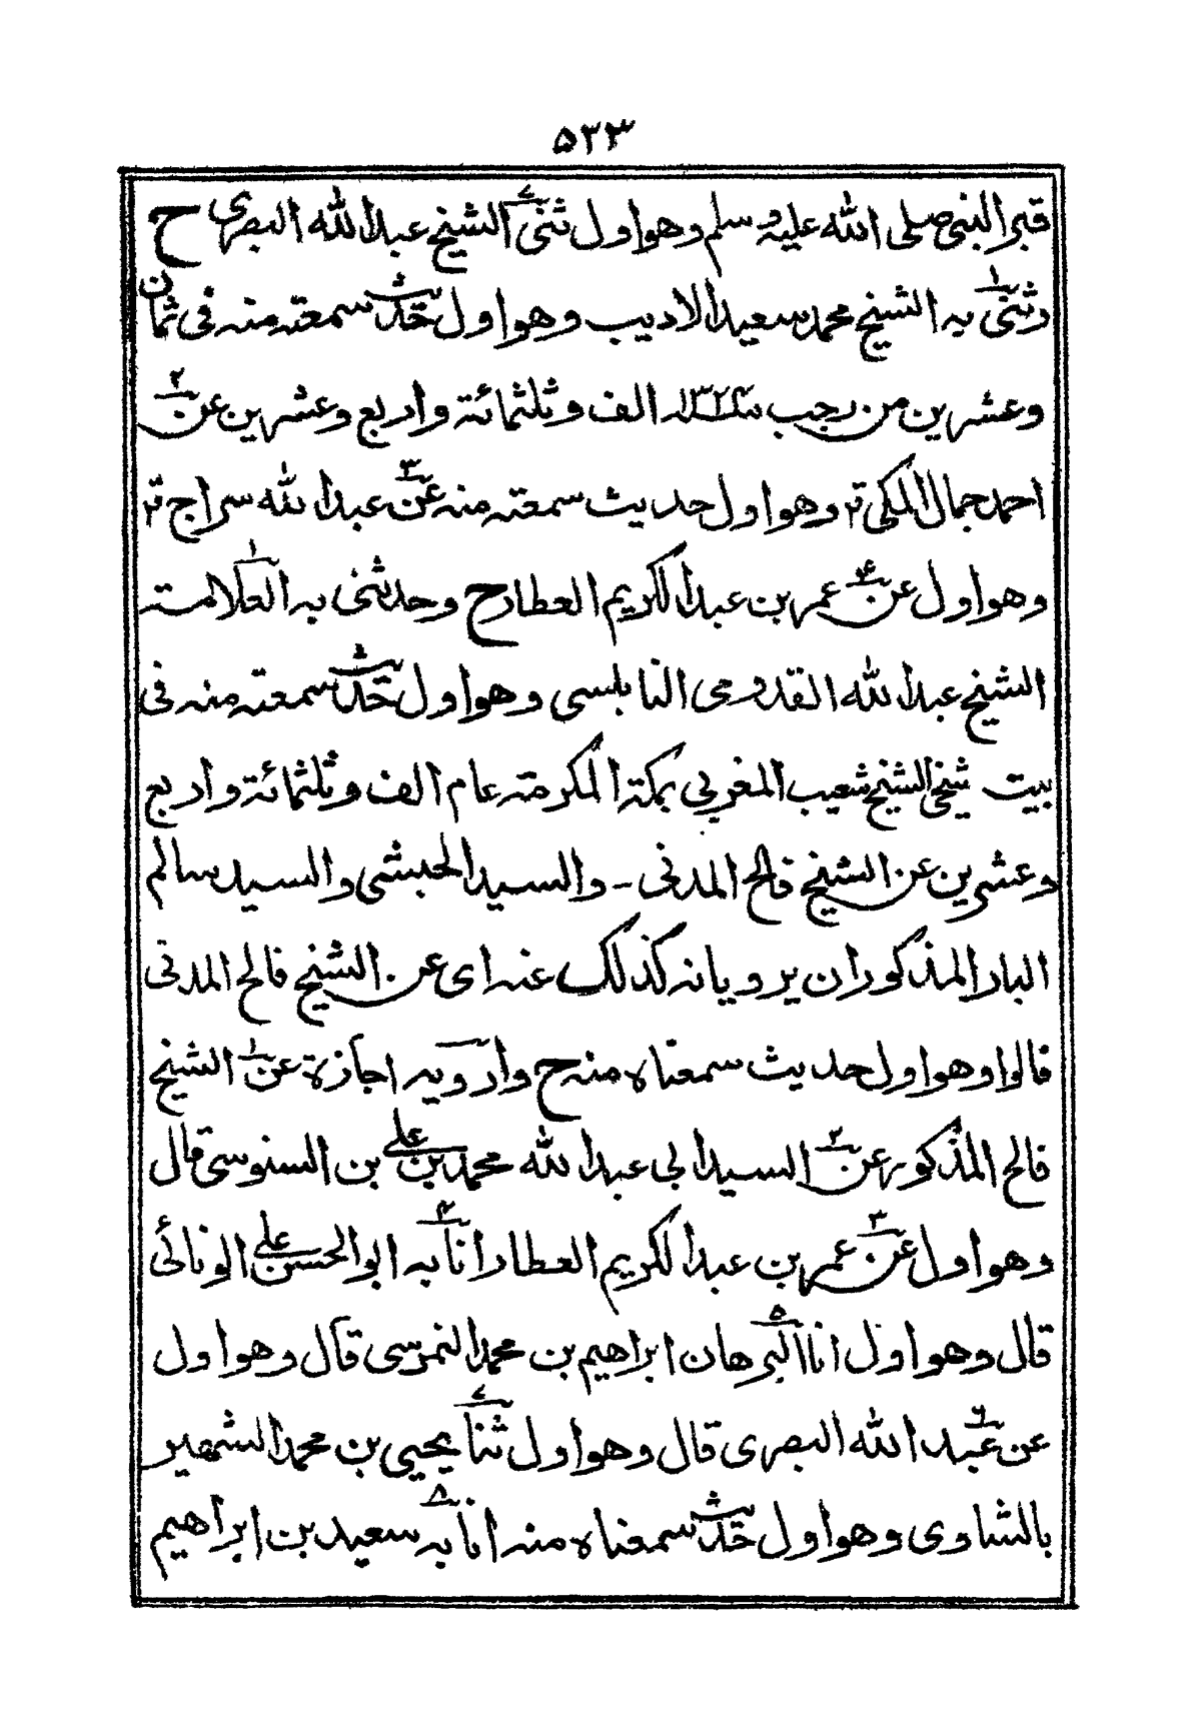 ۵۳۳
قبر النبی صلی اللہ علیہ وسلم وھو اول ثنی الشیخ عبد اللہ البصری ح
دثنی بہ الشیخ محمد سعید الادیب وھو اول حدیث سمعتہ منہ فی ثمان
وعشرین من رجب ۱۳۲۴ الف وثلثمائۃ واربع وعشرین عن
احمد جمال المکی وھو اول حدیث سمعتہ منہ عن عبد اللہ سراج
وھو اول عن عمر بن عبد الکریم العطار ح وحدثنی بہ العلامتہ
الشیخ عبد اللہ القدومی النابلسی وھو اول حدیث سمعتہ منہ فی
بیت شیخی الشیخ شعیب المغربی بمکۃ المکرمتہ عام الف وثلثمائۃ واربع
وعشرین عن الشیخ فالح المدنی - والسید الحبشی والسید سالم
البار المذکوران یرویانہ کذلک عنہ ای عن الشیخ فالح المدنی
قالوا وھو اول حدیث سمعناہ منہ ح وارویہ اجازۃ عن الشیخ
فالح المذکور عن السید ابی عبد اللہ محمد بن علی بن السنوسی قال
وھو اول عن عمر بن عبد الکریم العطار انا بہ ابو الحسن علی الونائی
قال وھو اول انا البرھان ابراھیم بن محمد النمرسی قال وھو اول
عن عبد اللہ البصری قال وھو اول ثنا یحیی بن محمد الشھیر
بالشاوی وھو اول حدیث سمعناہ منہ انا بہ سعید بن ابراھیم